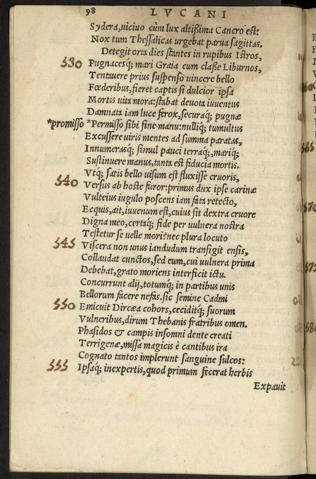 98 LVCANI
Sydera, uiciuo cùm lux altißima Cancro est:
Nox tum Thessalicas urgebat parua sagittas.
Detegit orta dies stantes in rupibus Istros,
530 Pugnacesq́; mari Graia cum classe Liburnos,
Tentauere prius suspenso uincere bello
Fœderibus, fieret captis si dulcior ipsa
Mortis uita mora: stabat deuota iuuentus
Damnata iam luce ferox, securaq́; pugnæ
*promisso *Permisso sibi fine manu: nulliq́; tumultus
Excussere uiris mentes ad summa paratas,
Innumerasq́; simul pauci terraq́;, mariq́;
Sustinuere manus, tanta est fiducia mortis.
Vtq́; satis bello uisum est fluxisse cruoris,
540 Versus ab hoste furor: primus dux ipse carinæ
Vulteius iugulo poscens iam fata retecto,
Ecquis, ait, iuuenum est, cuius sit dextra cruore
Digna meo, certaq́; fide per uulnera nostra
Testetur se uelle mori? nec plura locuto
545 Viscera non unus iamdudum transigit ensis,
Collaudat cunctos, sed eum, cui uulnera prima
Debebat, grato moriens interficit ictu.
Concurrunt alij, totumq́; in partibus unis
Bellorum fecere nefas. sic semine Cadmi
550 Emicuit Dircæa cohors, ceciditq́; suorum
Vulneribus, dirum Thebanis fratribus omen.
Phasidos & campis insomni dente creati
Terrigenæ, missa magicis è cantibus ira
Cognato tantos implerunt sanguine sulcos:
555 Ipsaq́; inexpertis, quod primum fecerat herbis
Expauit